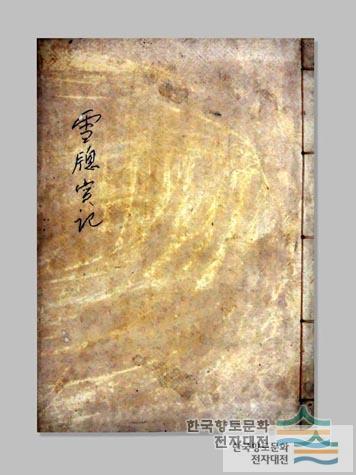 雪牕實記
한국향토문화
전자대전
한국향토문화
전자대전